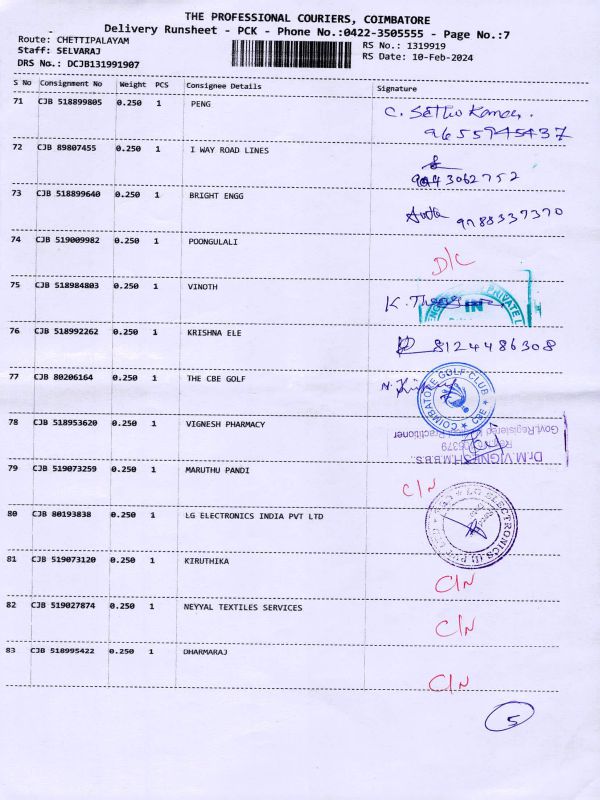 THE PROFESSIONAL COURIERS, COIMBATORE
Delivery Runsheet - PCK - Phone No.:0422-3505555 - Page No.:7
Route: CHETTIPALAYAM
Staff: SELVARAJ
DRS No.: DCJB131991907
RS No.: 1319919
RS Date: 10-Feb-2024
S No Consignment No Weight PCS Consignee Details Signature
71 CJB 518899805 0.250 1 PENG
9655945437
72 CJB 89807455 0.250 1 I WAY ROAD LINES
3062752
73 CJB 518899640 0.250 1 BRIGHT ENGG
9788337370
74 CJB 519009982 0.250 1 POONGULALI
D/C
75 CJB 518984803 0.250 1 VINOTH
PRIVATE
IN
76 CJB 518992262 0.250 1 KRISHNA ELE 8124486308
77 CJB 80206164 0.250 1 THE CBE GOLF
COIMBATORE GOLF CLUB
78 CJB 518953620 0.250 1 VIGNESH PHARMACY
Dr.M.VIGNESH.M.B.B.S.,
Govt.Registered Practitioner
79 CJB 519073259 0.250 1 MARUTHU PANDI
C/N
80 CJB 80193838 0.250 1 LG ELECTRONICS INDIA PVT LTD
LG ELECTRONICS
81 CJB 519073120 0.250 1 KIRUTHIKA
C/N
82 CJB 519027874 0.250 1 NEYYAL TEXTILES SERVICES
C/N
83 CJB 518995422 0.250 1 DHARMARAJ
C/N
5